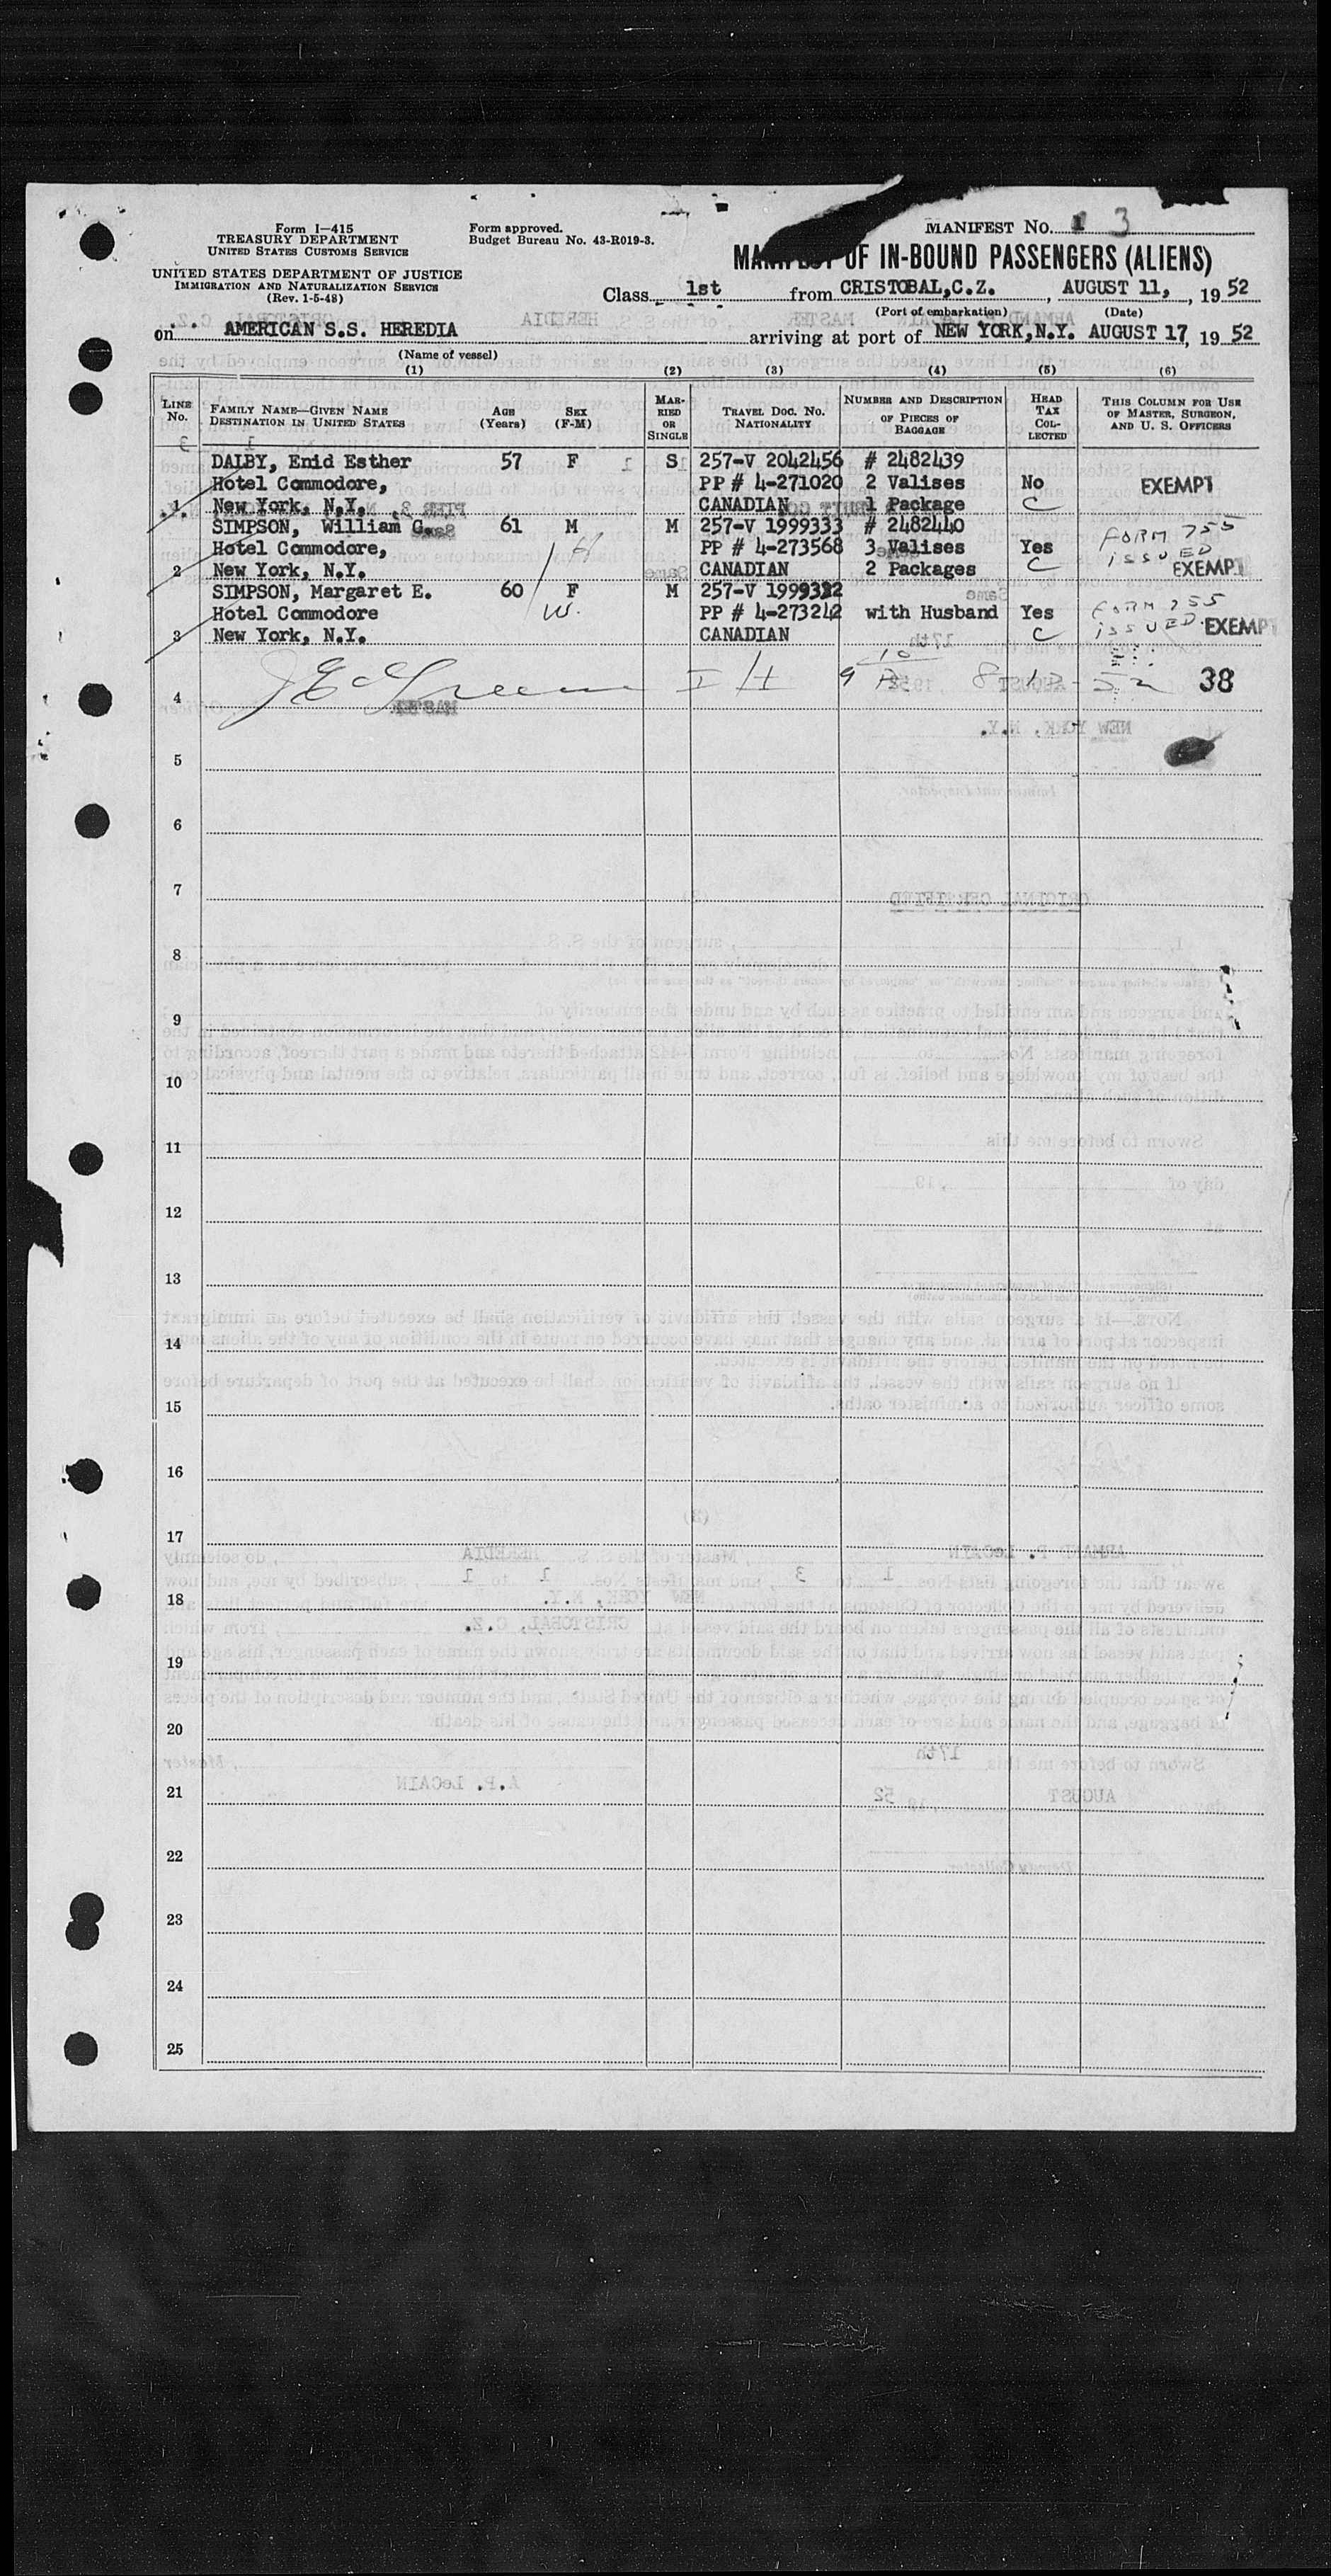 Form I-415
TREASURY DEPARTMENT
UNITED STATES CUSTOMS SERVICE
UNITED STATES DEPARTMENT OF JUSTICE
IMMIGRATION AND NATURALIZATION SERVICE
(Rev. 1-5-48)
Form approved.
Budget Bureau No. 43-R019-3.
MANIFEST No. 3
MANIFEST OF IN-BOUND PASSENGERS (ALIENS)
Class 1st from CRISTOBAL, C.Z. , AUGUST 11, , 19 52
(Port of embarkation) (Date)
on AMERICAN S.S. HEREDIA arriving at port of NEW YORK, N.Y. AUGUST 17, 19 52
(Name of vessel)
(1) (2) (3) (4) (5) (6)
LINE No. FAMILY NAME—GIVEN NAME DESTINATION IN UNITED STATES AGE (Years) SEX (F-M) MARRIED OR SINGLE TRAVEL DOC. No. NATIONALITY NUMBER AND DESCRIPTION OF PIECES OF BAGGAGE HEAD TAX COLLECTED THIS COLUMN FOR USE OF MASTER, SURGEON, AND U. S. OFFICERS
DALBY, Enid Esther 57 F S 257-V 2042456 # 2482439
Hotel Commodore, PP # 4-271020 2 Valises No EXEMPT
1 New York, N.Y. CANADIAN 1 Package C
SIMPSON, William G. 61 M M 257-V 1999333 # 2482440 FORM 755
Hotel Commodore, H PP # 4-273568 3 Valises Yes ISSUED
2 New York, N.Y. CANADIAN 2 Packages C EXEMPT
SIMPSON, Margaret E. 60 F M 257-V 1999332 FORM 755
Hotel Commodore W. PP # 4-273242 with Husband Yes ISSUED EXEMPT
3 New York, N.Y. CANADIAN C
4 38
5
6
7
8
9
10
11
12
13
14
15
16
17
18
19
20
21
22
23
24
25